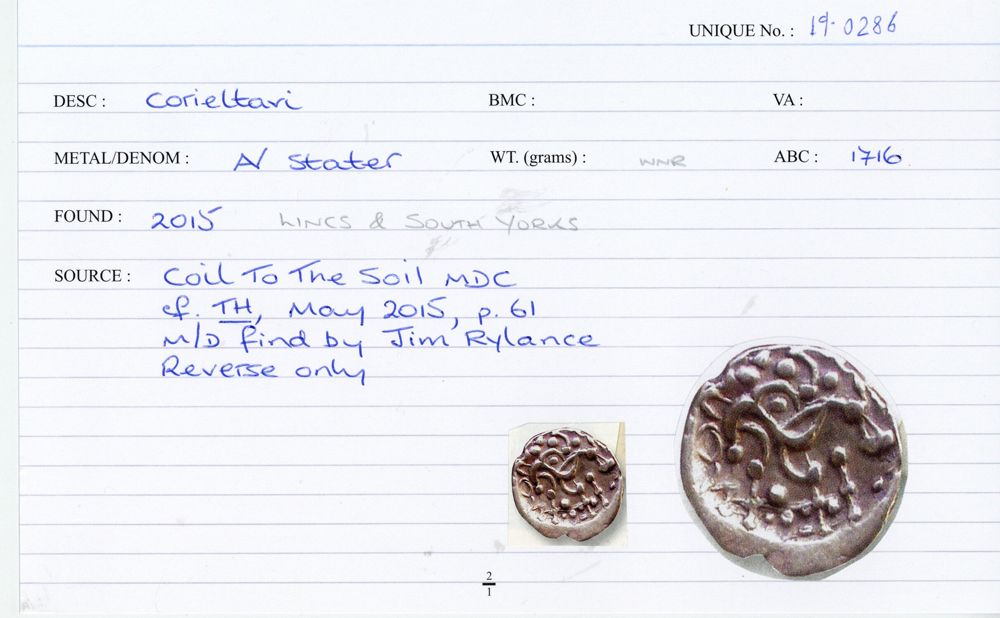 UNIQUE No. : 19·0286
DESC : Corieltavi BMC : VA :
METAL/DENOM : A/ Stater WT. (grams) : WNR ABC : 1716
FOUND : 2015 LINCS & SOUTH YORKS
SOURCE : Coil To The Soil MDC
cf. TH, May 2015, p. 61
M/D find by Jim Rylance
Reverse only
2
1